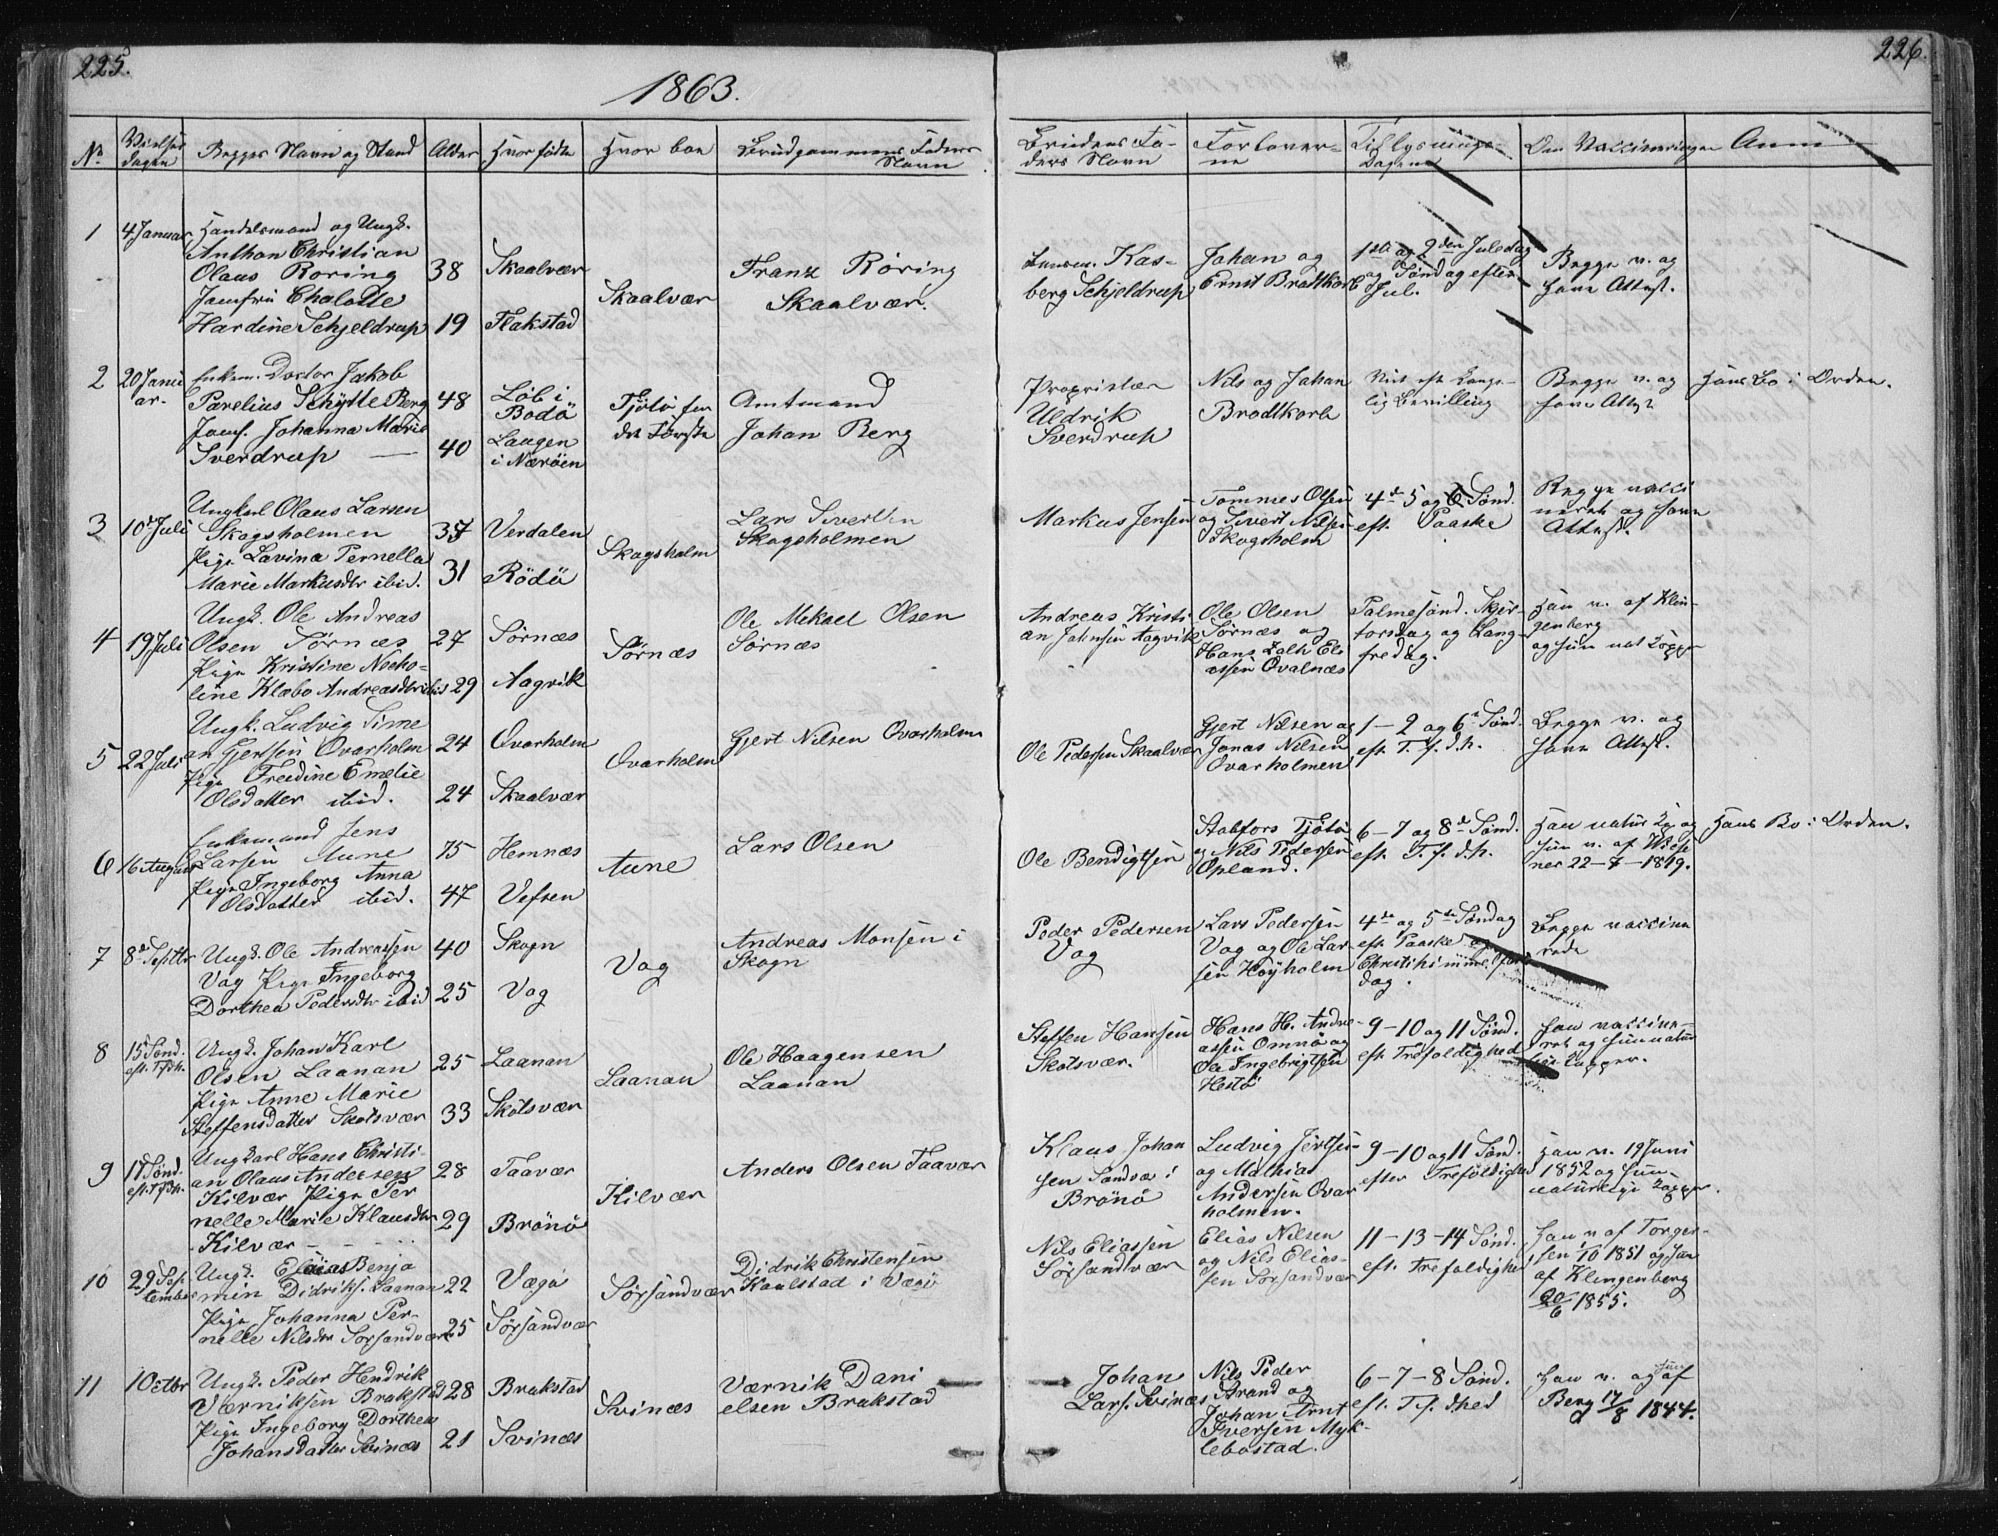 225.
1863.
226.
No
Vielses
dagen
Begges Navn og Stand
Alder
Hvor födte
Hvor boe
Brudgommens Faders
Navn
Brudens Fa-
ders Navn
Forlover-
ne
Tillysnings-
Dagene
Om Vaccineringen
Anm
1
4 Januar
Handelsmand og Ungk.
Anthon Christian
Olaus Roring
Jomfru Chalotte
Hardine Schjeldrup
38
19
Skaalvær
Flakstad
Skaalvær
Franz Röring
Skaalvær.
Kas-
berg Schjeldrup
Johan og
Ernst Brodtkorb
1ste og 2den Juledag
og Söndag efter
Jul.
Begge v. og
have Attest.
2
20 Janu
ar.
Enkem. Doctor Jakob
Parelius Schytte Berg
Jomf. Johanna Marie
Sverdrup
48
40
Löb i
Bodö
Laugen
i Næröen
Tjötö for
det Förste
Amtmand
Johan Berg
Proprietær
Uldrik
Sverdrup
Nils og Johan
Brodtkorb
Viet eft. Konge-
lig Bevilling
Begge v. og
have Attest
Hans Bo i Orden.
3
10de Juli
Ungkarl Olaus Larsen
Skogsholmen
Pige Lavina Pernella
Marie Markusdtr ibid.
35
31
Verdalen
Rödö
Skogsholm
Lars Sivertsen
Skogsholmen
Markus Jensen
Tommes Olsen
og Sivert Nilsen
Skogsholm
4de 5 og 6 Sönd.
eft. Paaske
Begge vacci
nerede og have
Attest.
4
19 Juli
Ungk. Ole Andreas
Olsen Törnæs
Pige Kristine Nicko-
line Klæbo Andreasdtr ibid
27
29
Sörnæs
Aagvik
Törnæs
Ole Mekael Olsen
Sörnæs
Andreas Kristi
an Johnsen Aagvik
Ole Olsen
Törnæs og
Hans Zakh Eli
assen Ovalnæs
Palmesönd. Skjær-
torsdag og Lang-
fredag.
Han v. af Klin-
genberg
og hun nat. Kopper
5
22 Juli
Ungk. Ludvig Sime
an Gjertsen Ovarholm
Pige Fredine Emelie
Olsdatter ibid.
24
24
Ovarholm
Skaalvær
Ovarholm
Gjert Nilsen Ovarholm
Ole Pedersen Skaalvær
Gjert Nilsen og
Jonas Nilsen
Ovarholmen
1 - 2 og 6te Sönd.
eft. T. f. d. h.
Begge v. og
have Attest.
6
16 August
Enkemand Jens
Larsen Aune
Pige Ingeborg Anna
Olsdatter ibid.
75
47
Hemnæs
Vefsen
Aune
Lars Olsen
Ole Bendigtsen
Stabfors Tjötö
og Nils Pedersen
Opland.
6 - 7 og 8de Sönd.
eft. T. f. d. h.
Han natur Kop og
hun v. af Wiese
ner 22-7-1819.
Hans Bo i Orden.
7
8de Septbr
Ungk. Ole Andreassen
Vog Pige Ingeborg
Dorthea Pedersdtr ibid
40
25
Skogn
Vog
Vog
Andreas Monsen i
Skogn
Peder Pedersen
Vog
Lars Pedersen
Vog og Ole Lar-
sen Höyholm
4de og 5te Söndag
eft. Paaske og
Christi himmelfarts
dag.
Begge vaccine
rede
8
15 Sönd.
eft. Tfdh.
Ungk. Johan Karl
Olsen Laanan
Pige Anne Marie
Steffensdatter Skotsvær
25
33
Laanan
Skotsvær
Laanan
Ole Haagensen
Laanan
Steffen Hansen
Skotsvær.
Hans H. Andre-
assen Omnö og
Ole Ingebrigtsen
Hestö
9 - 10 og 11 Sönd.
eft. Trefoldighed
Han vaccine-
ret og hun natur
lige Kopper.
9
17 Sönd.
eft. Tfdh.
Ungkarl Hans Christi-
an Olaus Andersen
Kilvær Pige Per
nelle Marie Klausdtr
Kilvær
28
29
Taavær
Brönö
Kilvær
Anders Olsen Taavær
Klaus Johan
sen Sandvæ i
Brönö
Ludvig Jertsen
og Mathias
Andersen Ovar
holmen.
9 - 10 og 11 Sönd.
efter Trefoldighed
Han v. 19 Juni
1852 og hun
naturlige Kopper.
10
29 Sep
tember
Ungk. Elias Benja
min Didriks. Laanan
Pige Johanna Per-
nelle Nilsdtr Sorsandvær
22
25
Vægö
Sörsandvær
Sörsandvær
Didrik Christensen
Kaulstad i Vægö
Nils Eliassen
Sörsandvær
Elias Nilsen
og Nils Elias-
sen Sorsandvær
11 - 13 - 14 Sönd.
eft. Trefoldighed
Han v af Torger-
sen 1851 og hun
af Klingenberg
20/6 1855.
11
1 Octbr
Ungk. Peder Hendrik
Værniksen Brakstad
Pige Ingeborg Dorthea
Johansdatter Svinæs
28
21
Brakstad
Svinæs
Svinæs
Værnik Dani
elsen Brakstad
Johan
Lars. Svinæs
Nils Peder
Strand og
Johan Arnt
Iversen Myk-
lebostad.
6 - 7 - 8 Sönd.
eft. T. f. dhed
Han v. og hun af
Berg 17/8 1844.